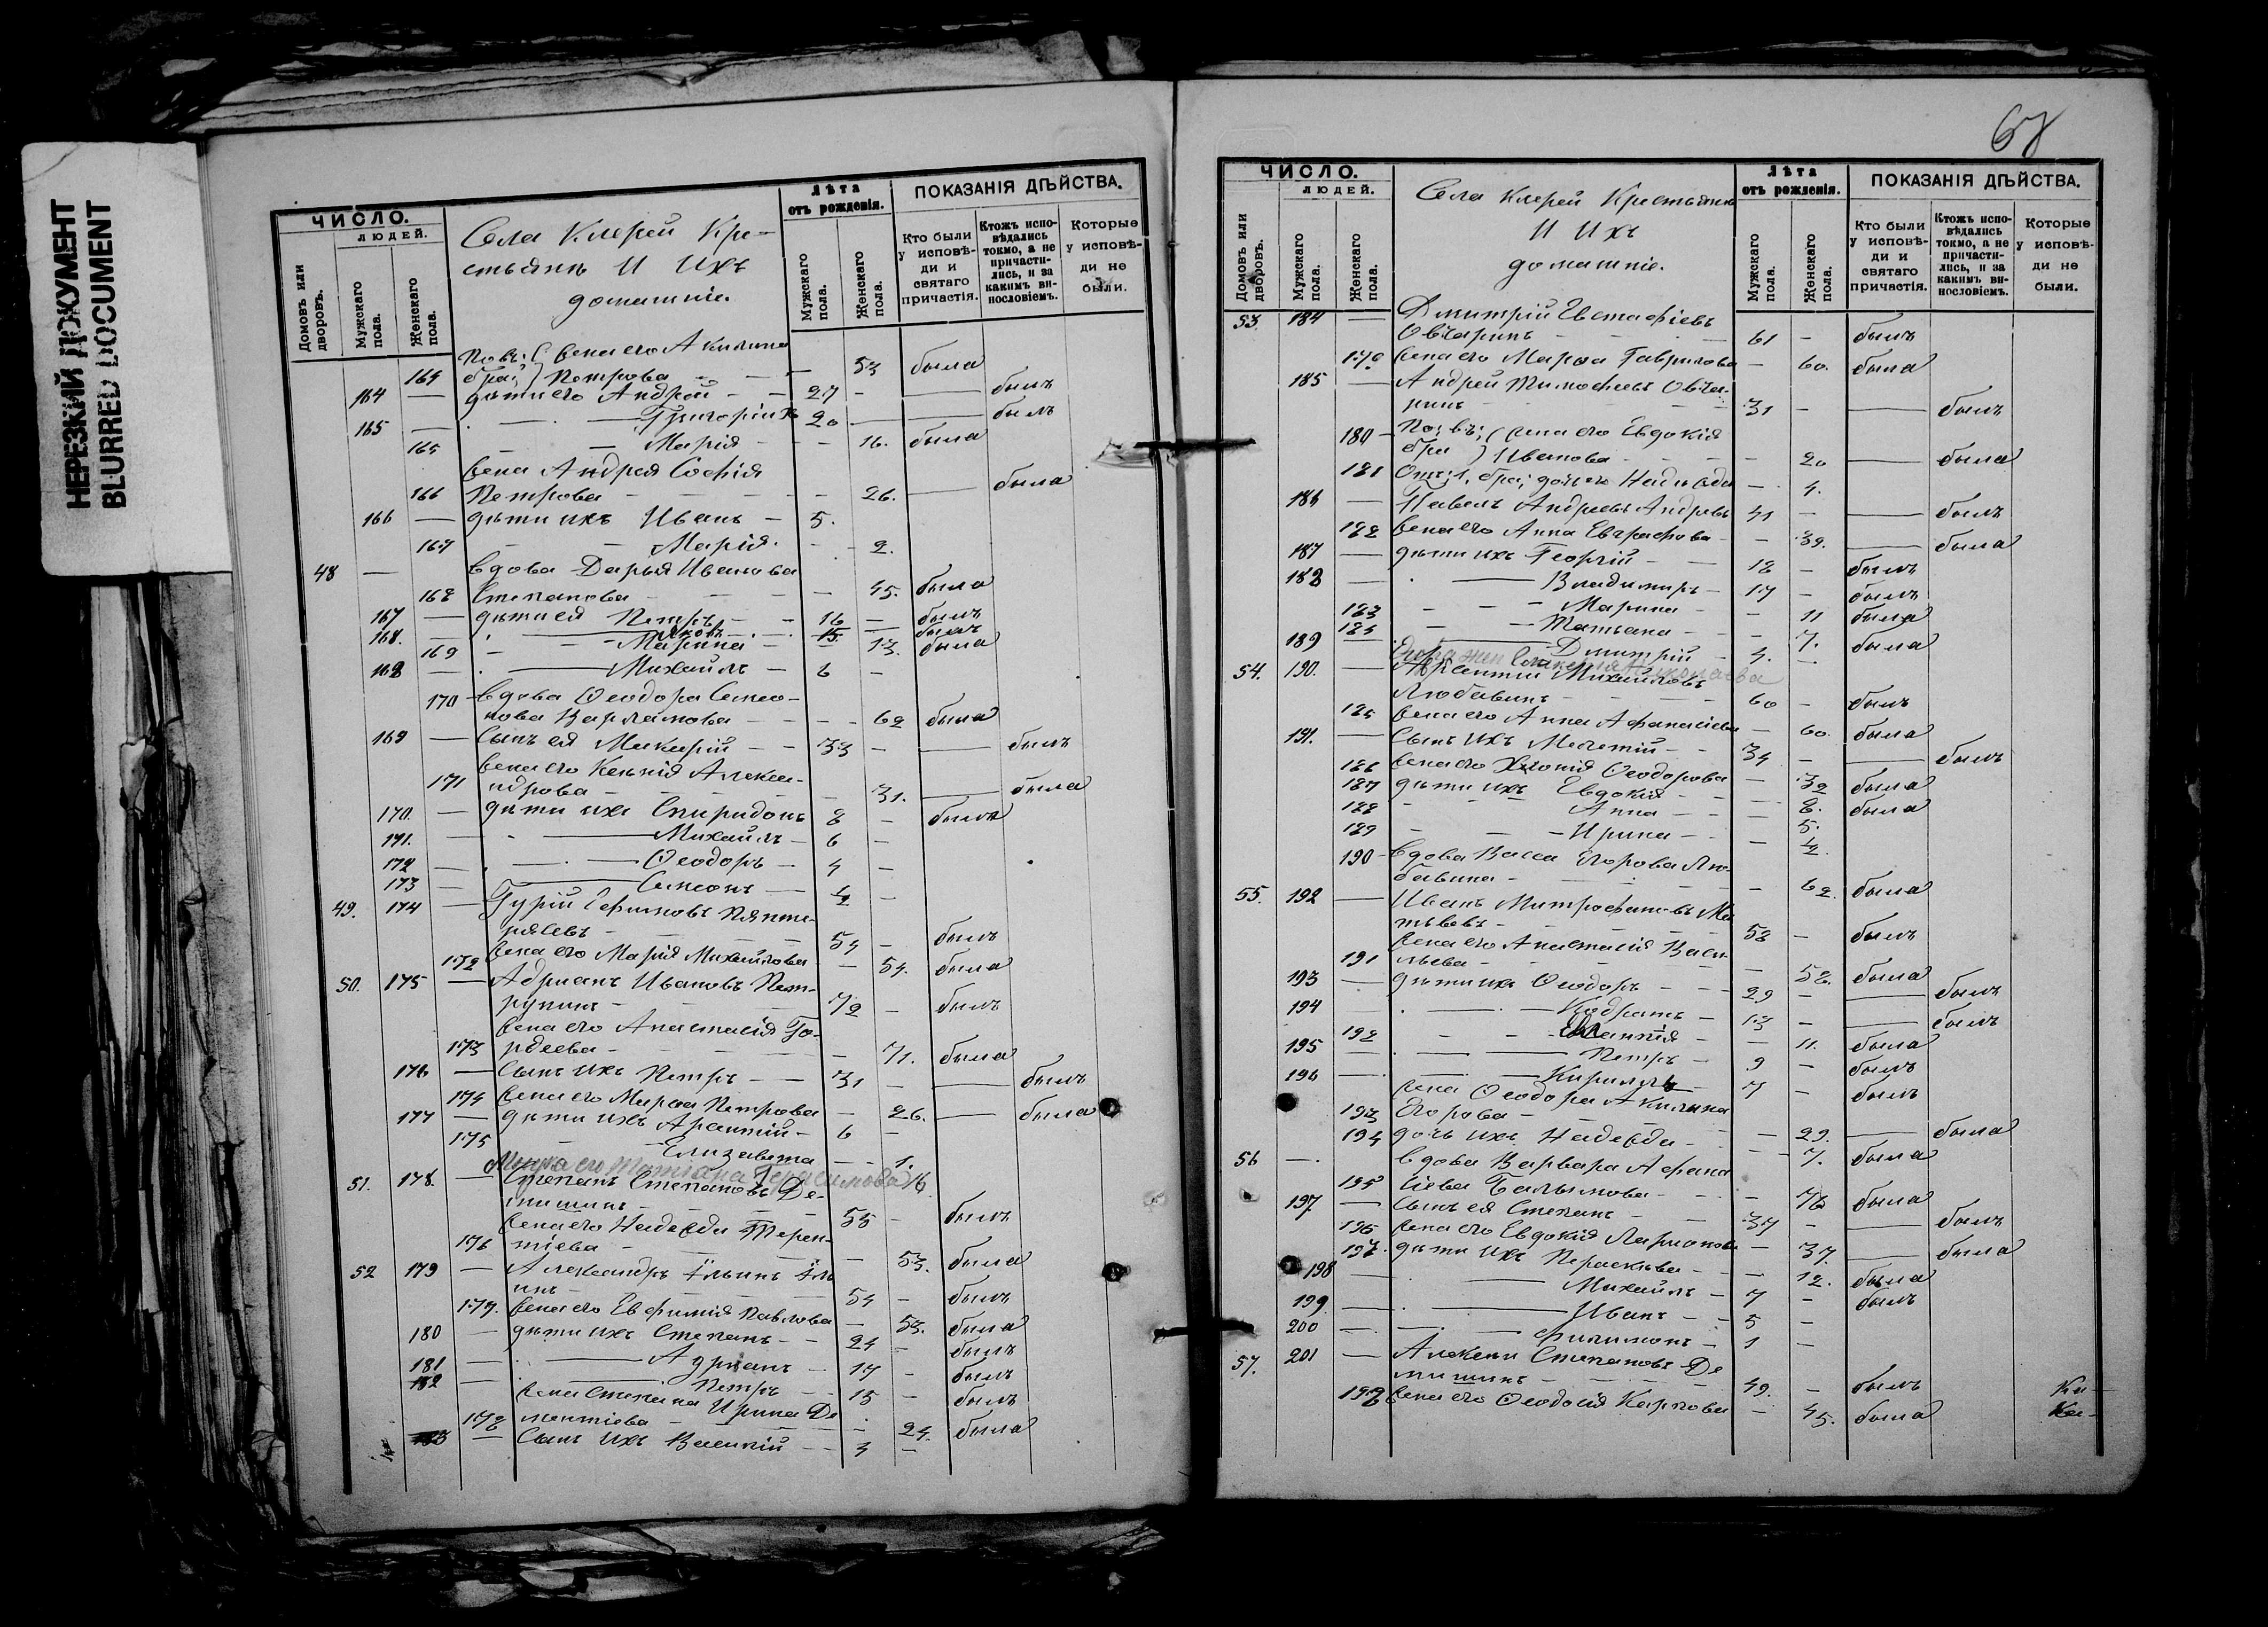 НЕРЕЗКИЙ ДОКУМЕНТ
BLURRED DOCUMENT
ЧИСЛО.
ЛЮДЕЙ.
Домовъ или дворовъ.
Мужскаго пола.
Женскаго пола.
Села Клерей Кре-
стьянъ И Ихъ
домашніе.
Лѣта
отъ рожденія.
Мужскаго пола.
Женскаго пола.
ПОКАЗАНІЯ ДѢЙСТВА.
Кто были у исповѣ-ди и святаго причастія.
Ктожъ испо-вѣдались токмо, а не причасти-лись, и за какимъ ви-нословіемъ.
Которые у исповѣ-ди не были.
жена его Акилина
164 Петрова - 53 была
164 — дѣти его Андрей - 27 - — былъ
165 — Григорій 20 — былъ
165 Марія - 16. была
жена Андрея Софія
166 Петрова - 26. — была
166 — дѣти ихъ Иванъ - 5.
167 Марія - 2.
48 — Вдова Дарья Иванова
168 Степанова - 45. была
167 — дѣти ея Петръ - 16 — былъ
168. — Яковъ - 15. — былъ
169 - Марина - 13. была
168 — Михаилъ - 6 -
170 Вдова Ѳеодора Симео-
нова Варламова - 62 была
169 — Сынъ ея Макарій - 33 - — былъ
жена его Ксенія Алексан-
171 дрова - 31. — была
170. — дѣти ихъ Спиридонъ 8 - былъ
171. — Михаилъ - 6 -
172 — Ѳеодоръ - 4 -
173 — Симеонъ — ½ -
49. 174 — Гурій Ефимовъ
54 - былъ
172 жена его Марія Михайлова - 54. была
50. 175 — Адріанъ Ивановъ Пет-
рунинъ - 72 - былъ
жена его Анастасія Го-
173 рдеева - 71. была
176 — Сынъ ихъ Петръ - 31 - — былъ
174 жена его Марѳа Петрова - 26. — была
177 — дѣти ихъ 6 -
175 - Елизавета - 1.
Татіана Герасимова 16
51. 178. — Степанъ Степановъ Де-
мишинъ - 55 - былъ
жена его Надежда Терен-
176 тіева - 53. была
52 179 — Александръ Ильинъ Иль
инъ - 54 - былъ
177. жена его Евфимія Павлова - 53. была
180 — дѣти ихъ Степанъ - 24 - былъ
181 — Адріанъ - 17 - былъ
182 — Петръ - 15 - былъ
жена Степана Ирина Де
178 ментіева - 24. была
183 — Сынъ ихъ Василій - 4 -
67
ЧИСЛО.
ЛЮДЕЙ.
Домовъ или дворовъ.
Мужскаго пола.
Женскаго пола.
Села Клерей Крестьянъ
И Ихъ
домашніе.
Лѣта
отъ рожденія.
Мужскаго пола.
Женскаго пола.
ПОКАЗАНІЯ ДѢЙСТВА.
Кто были у исповѣ-ди и святаго причастія.
Ктожъ испо-вѣдались токмо, а не причасти-лись, и за какимъ ви-нословіемъ.
Которые у исповѣ-ди не были.
53. 184 — Дмитрій Евстафіевъ
Овчаринъ - 61 - былъ
179 жена его Марѳа Гаврилова - 60. была
185 — Андрей Тимофеевъ Овча-
ринъ - 31 - — былъ
180 жена его Евдокія
Иванова - 20 — была
181 Надежда - 4.
186 — Павелъ Андреевъ Андреевъ 41 - — былъ
182 жена его Анна Евграфова - 39. — была
187 — дѣти ихъ Георгій - 18 - былъ
188 — Владимиръ - 17 - былъ
183 - Марина - 11 была
184 - Татьана - 7. была
189 — Дмитрій - 4. -
54. 190. — Михайловъ
Любавинъ - 60 - былъ
185 жена его Анна Афанасіева - 60. была
191. — Сынъ ихъ Мелетій - 34 - — былъ
186 жена его Ѳеодорова - 32 была
187 дѣти ихъ Евдокія - 8. была
188 - Анна - 5.
189 - Ирина - ½.
190 Вдова Васса Егорова Лю-
бавина - 62. была
55. 192 — Иванъ Митрофановъ Ма
твѣевъ - 58 - былъ
жена его Анастасія Васи
191 льева - 58. была
193 — дѣти ихъ Ѳеодоръ - 29 - — былъ
194 — Кодратъ - 13 - — былъ
192 - 11. была
195 — Петръ - 9 - былъ
196 — Кириллъ - 7 - былъ
жена Ѳеодора Акилина
193 Егорова - 29. — была
194 дочь ихъ Надежда - 7. была
56 — Вдова Варвара Афана
195 сіева - 76 была
197 — Сынъ ея Степанъ - 37 - — былъ
196 жена его Евдокія Ларіонова - 37. — была
197. дѣти ихъ Параскева - 12. была
198 — Михаилъ - 7 - былъ
199 — Иванъ - 5 -
200 — Филимонъ - 1 -
57. 201 — Алексѣй Степановъ Де
мишинъ - 49. - былъ
198 жена его Ѳеодосія Карпова - 45. была